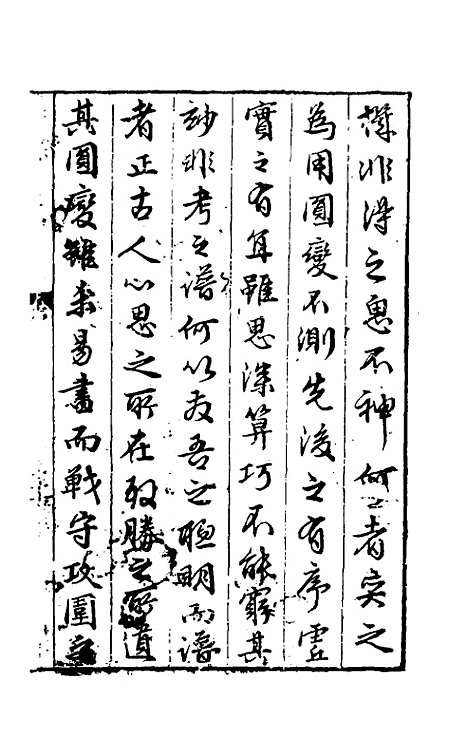 機非得之思不神何者奕之
為用圓變不測先後之有序虛
實之有耳雖思深算巧不能窮其
妙非考之譜何以發吾之聰明而譜
者正古人心思之所在取勝之所道
其圓變雖未易盡而戰守攻圍之